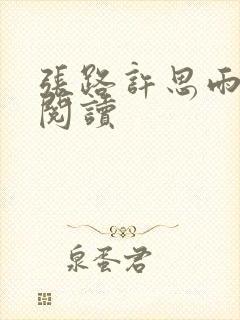 張路許思雨
閱讀
泉蛋君